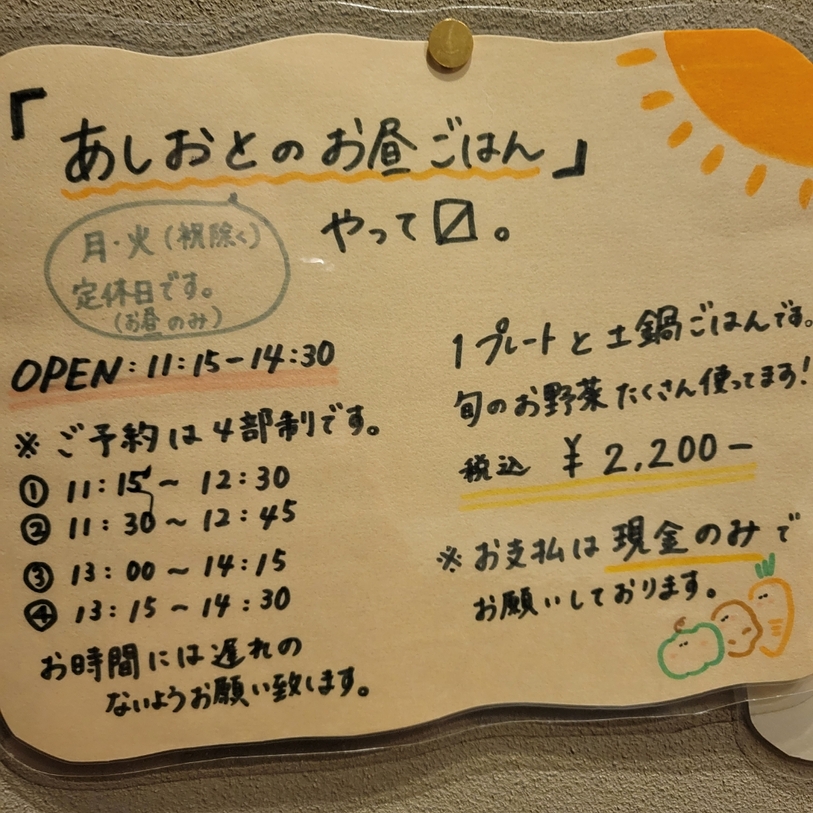 「あしおとのお昼ごはん」
やって〼。
月・火（祝除く）
定休日です。
（お昼のみ）
OPEN:11:15-14:30
※ご予約は4部制です。
① 11:15～12:30
② 11:30～12:45
③ 13:00～14:15
④ 13:15～14:30
お時間には遅れの
ないようお願い致します。
1プレートと土鍋ごはんです。
旬のお野菜たくさん使ってます!
税込 ¥2,200-
※お支払は現金のみで
お願いしております。